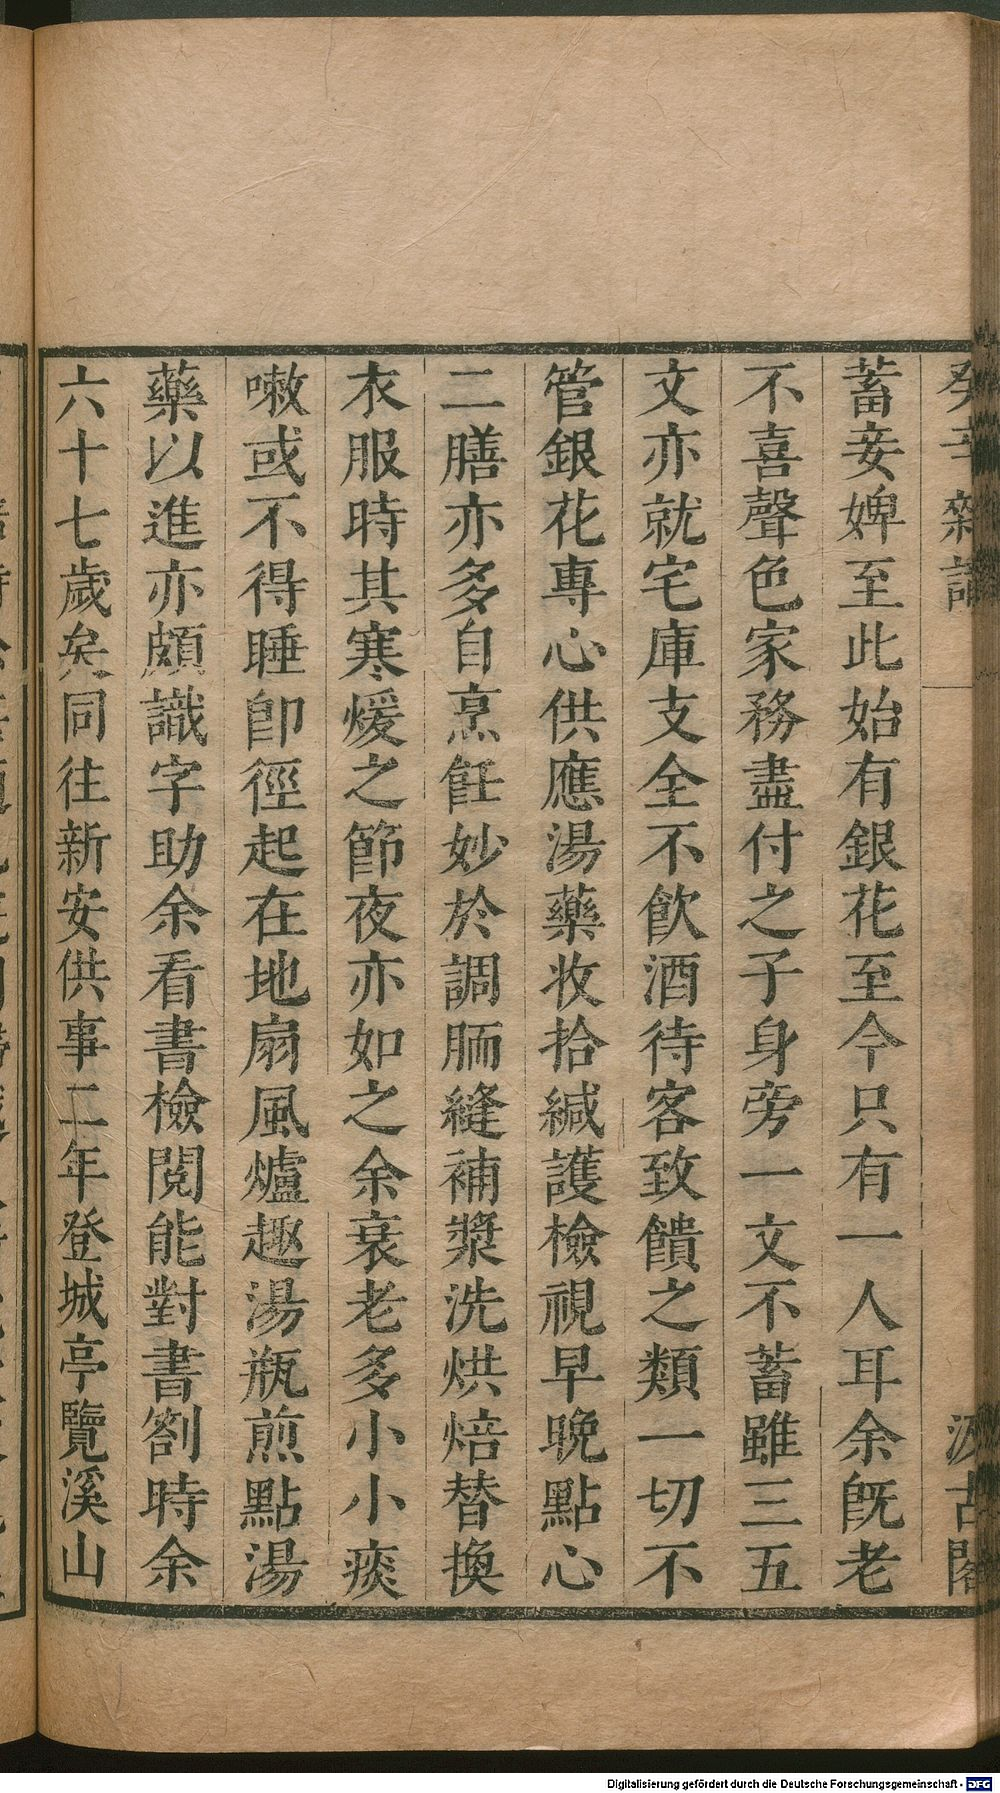 癸辛雜識 汲古閣
蓄妾婢至此始有銀花至今只有一人耳余旣老
不喜聲色家務盡付之子身旁一文不蓄雖三五
文亦就宅庫支全不飮酒待客致饋之類一切不
管銀花專心供應湯藥收拾緘護檢視早晚點心
二膳亦多自烹飪妙於調胹縫補漿洗烘焙替換
衣服時其寒煖之節夜亦如之余衰老多小小痰
嗽或不得睡卽徑起在地扇風爐趣湯瓶煎點湯
藥以進亦頗識字助余看書檢閱能對書劄時余
六十七歲矣同往新安供事二年登城亭覽溪山
Digitalisierung gefördert durch die Deutsche Forschungsgemeinschaft - DFG